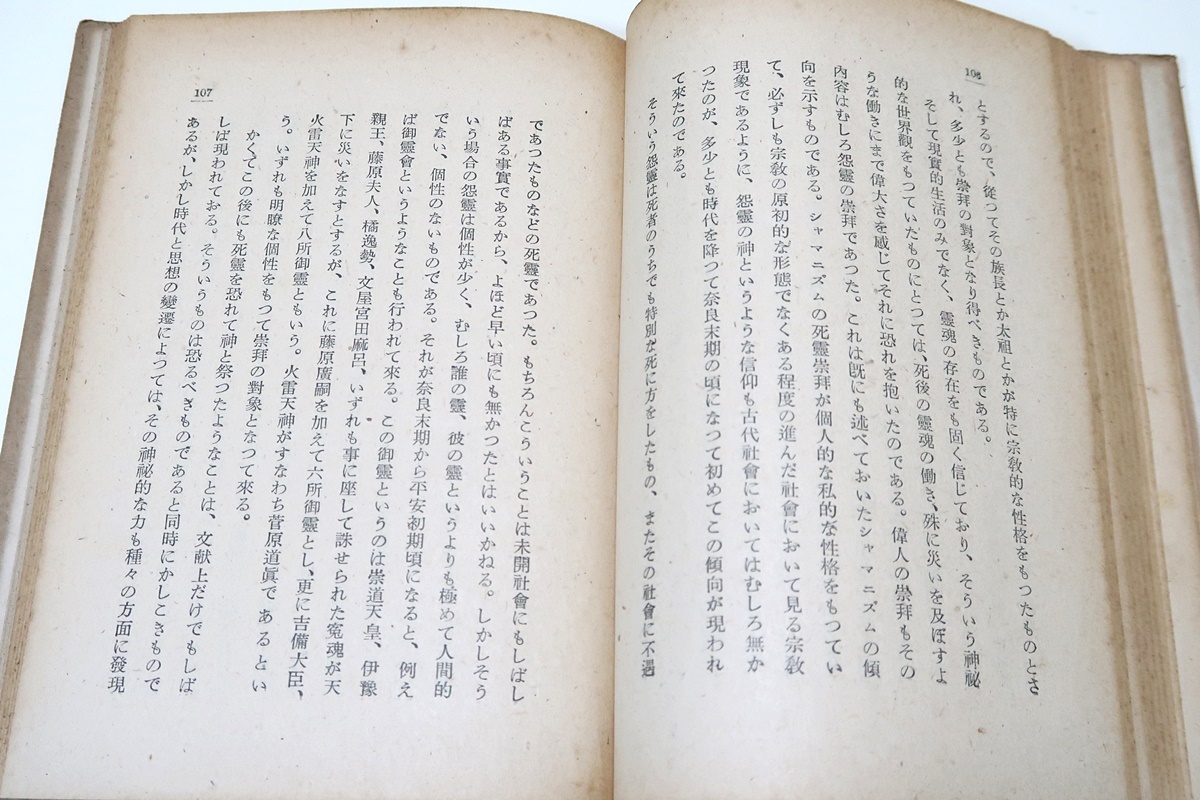 106
とするので、從つてその族長とか太祖とかが特に宗敎的な性格をもつたものとさ
れ、多少とも崇拜の對象となり得べきものである。
そして現實的生活のみでなく、靈魂の存在をも固く信じており、そういう神祕
的な世界觀をもつていたものにとつては、死後の靈魂の働き、殊に災いを及ぼすよ
うな働きにまで偉大さを感じてそれに恐れを抱いたのである。偉人の崇拜もその
內容はむしろ怨靈の崇拜であつた。これは既にも述べておいたシャマニズムの傾
向を示すものである。シャマニズムの死靈崇拜が個人的な私的な性格をもつてい
て、必ずしも宗敎の原初的な形態でなくある程度の進んだ社會において見る宗敎
現象であるように、怨靈の神というような信仰も古代社會においてはむしろ無か
つたのが、多少とも時代を降つて奈良末期の頃になつて初めてこの傾向が現われ
て來たのである。
そういう怨靈は死者のうちでも特別な死に方をしたもの、またその社會に不遇
107
であつたものなどの死靈であつた。もちろんこういうことは未開社會にもしばし
ばある事實であるから、よほど早い頃にも無かつたとはいいかねる。しかしそう
いう場合の怨靈は個性が少く、むしろ誰の靈、彼の靈というよりも極めて人間的
でない、個性のないものである。それが奈良末期から平安初期頃になると、例え
ば御靈會というようなことも行われて來る。この御靈というのは崇道天皇、伊豫
親王、藤原夫人、橘逸勢、文屋宮田麻呂、いずれも事に座して誅せられた冤魂が天
下に災いをなすとするが、これに藤原廣嗣を加えて六所御靈とし、更に吉備大臣、
火雷天神を加えて八所御靈ともいう。火雷天神がすなわち菅原道眞であるとい
う。いずれも明瞭な個性をもつて崇拜の對象となつて來る。
かくてこの後にも死靈を恐れて神と祭つたようなことは、文献上だけでもしば
しば現われておる。そういうものは恐るべきものであると同時にかしこきもので
あるが、しかし時代と思想の變遷によつては、その神祕的な力も種々の方面に發現